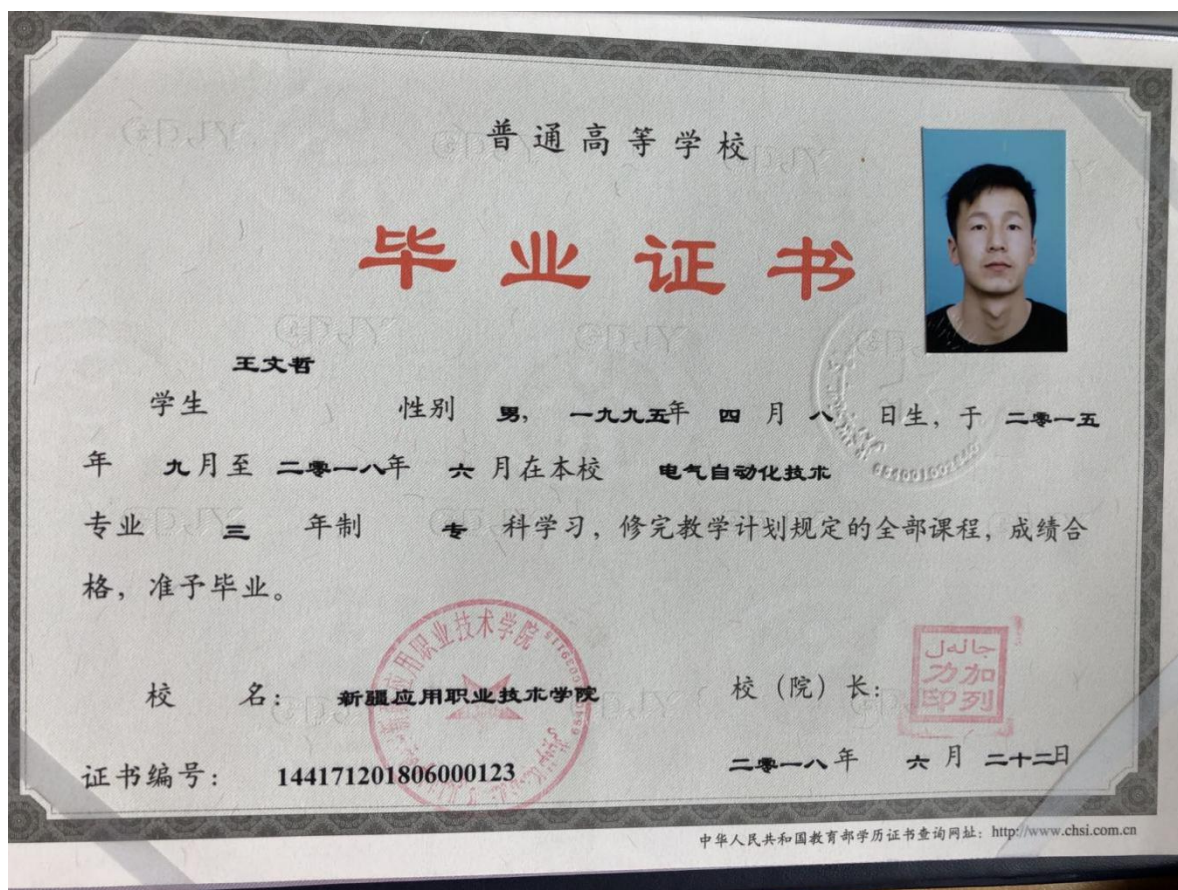 普通高等学校
毕业证书
王文哲
学生 性别 男， 一九九五年 四 月 八 日生，于 二零一五
年 九月至 二零一八年 六 月在本校 电气自动化技术
专业 三 年制 专 科学习，修完教学计划规定的全部课程，成绩合
格，准予毕业。
新疆应用职业技术学院
校 名： 新疆应用职业技术学院
校（院）长：
جالەل
加列
功印
证书编号： 144171201806000123
二零一八年 六 月 二十二日
中华人民共和国教育部学历证书查询网址：http://www.chsi.com.cn